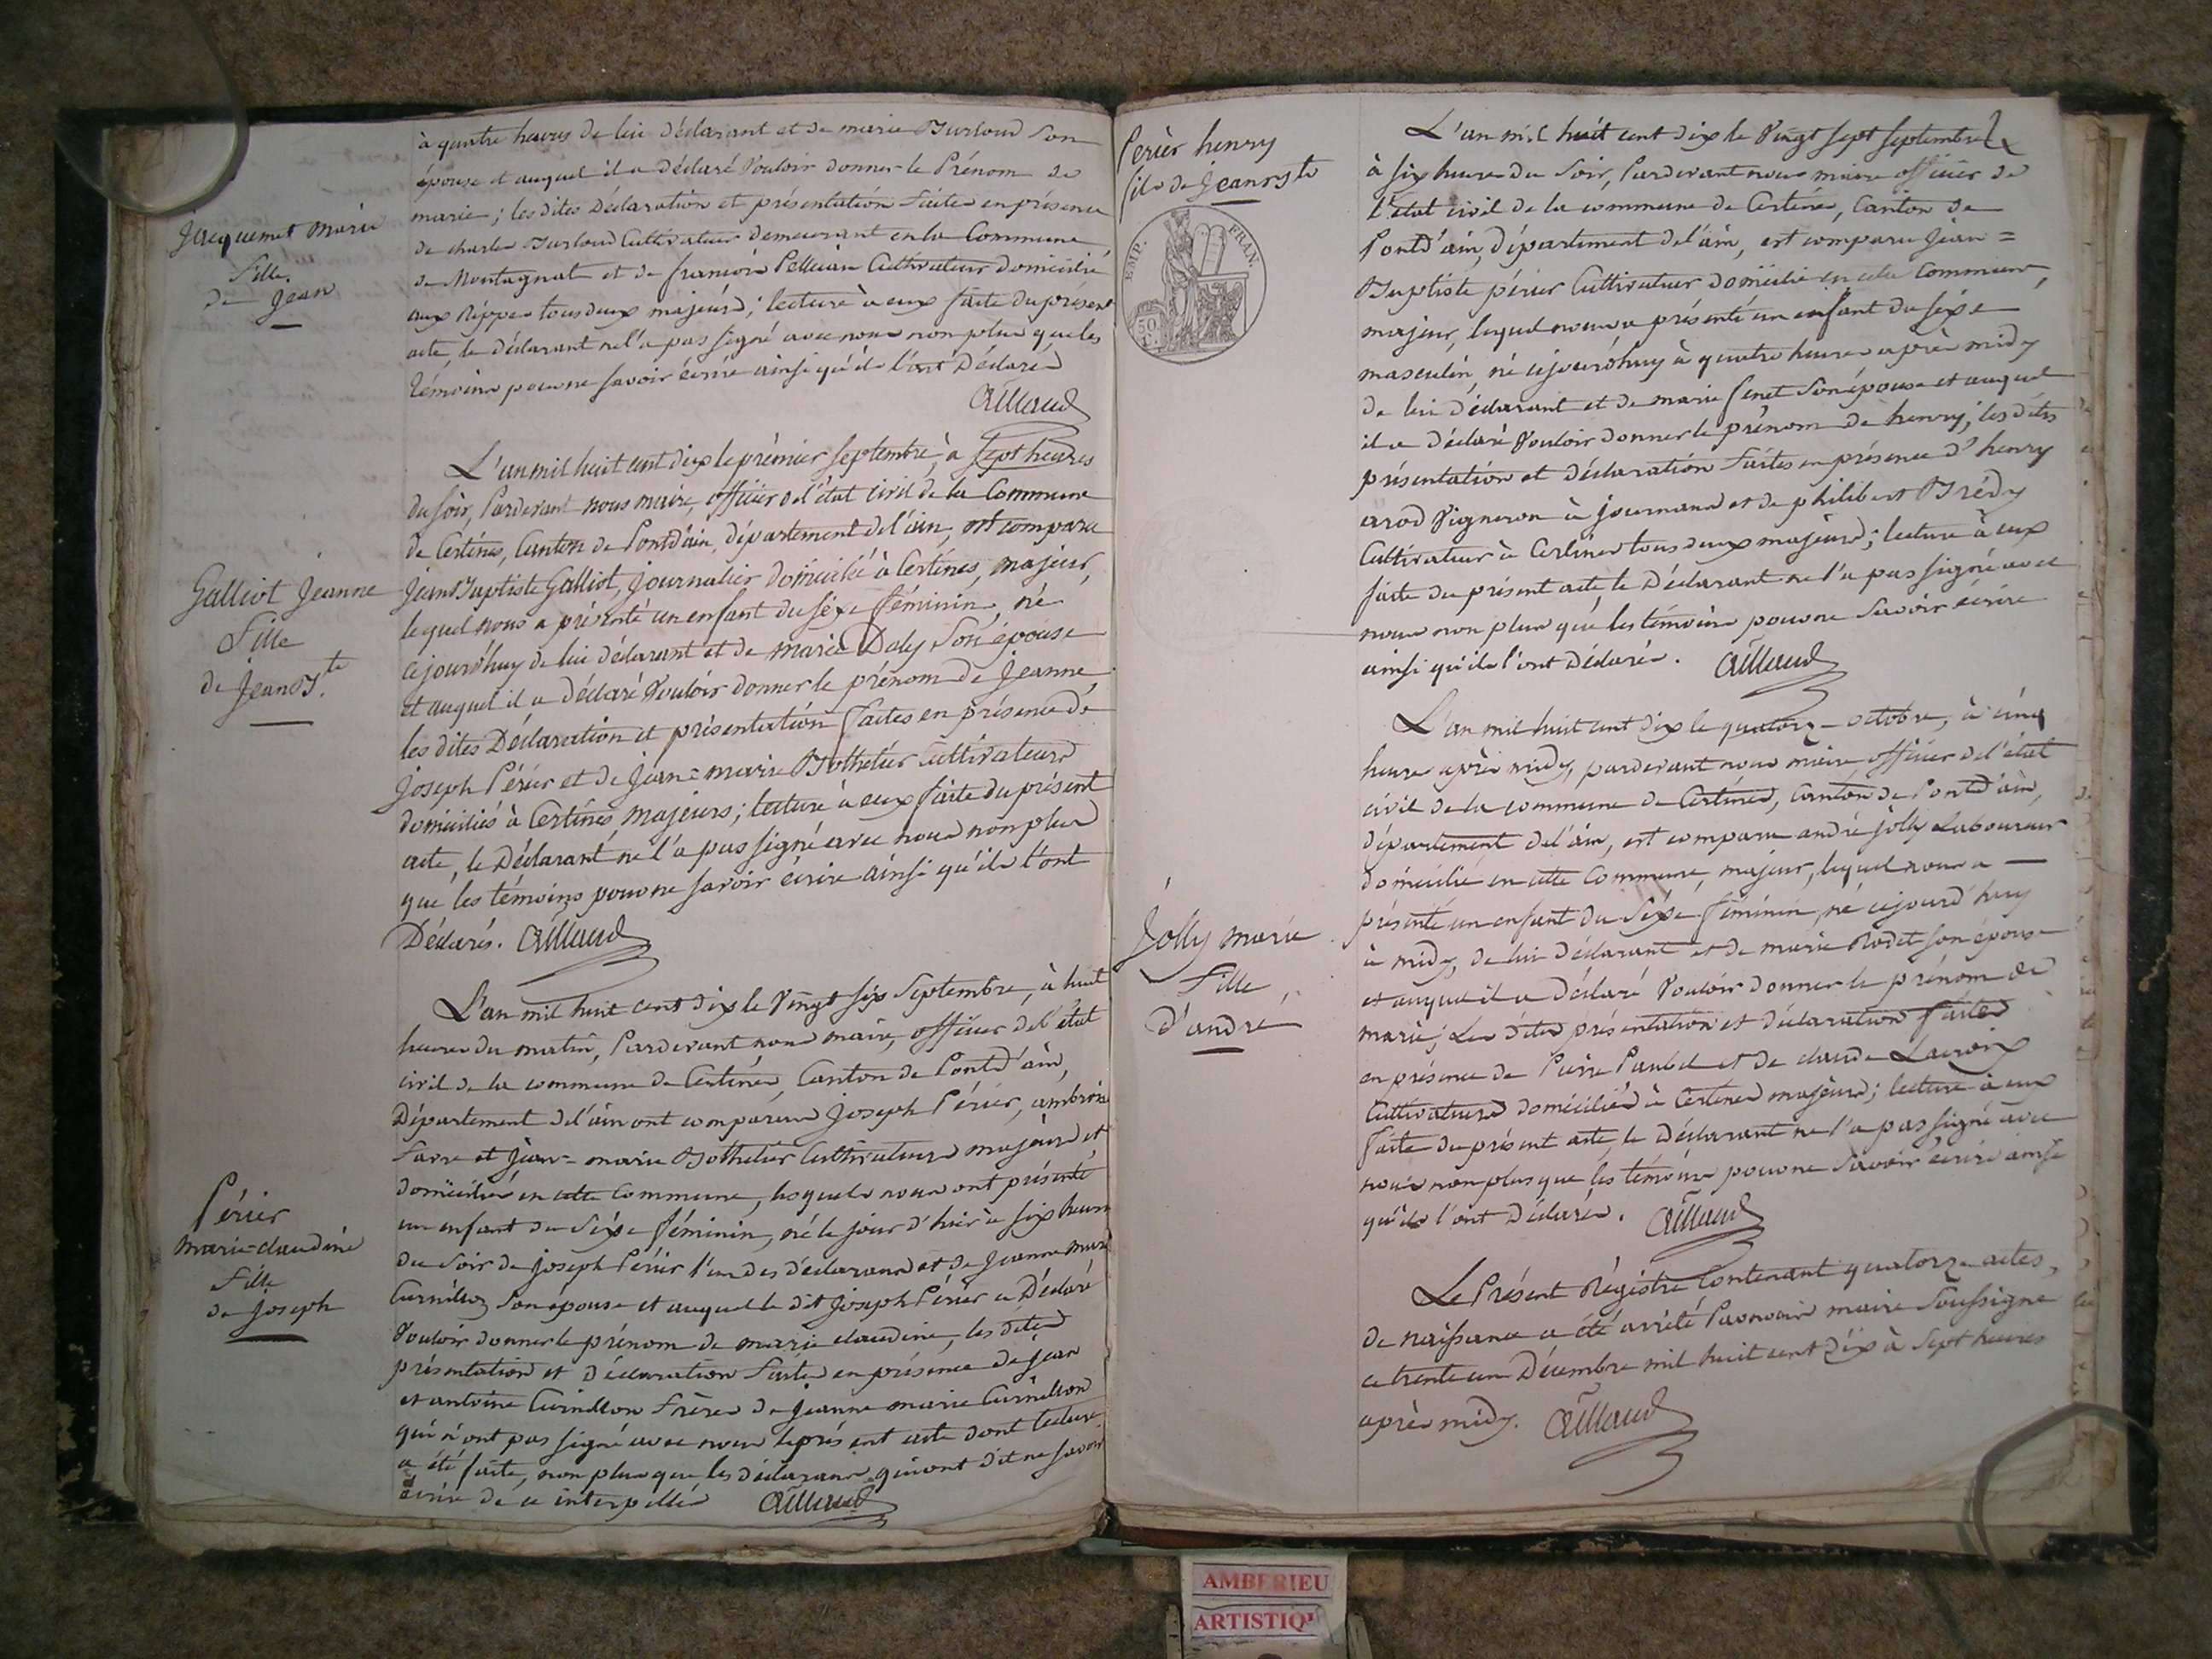 à quatre heures de lui déclarant et de marie Burloud son
épouse et auquel il a déclaré vouloir donner le Prénom de
marie ; les dites Déclaration et présentation faites en présence
de charles Burloud Cultivateur demeurant en la Commune
de Montagnat et de françois Cultivateur domicilié
aux Rippes tous deux majeurs ; lecture à eux faite du présent
acte, le déclarant ne l'a pas signé avec nous non plus que les
témoins pour ne savoir écrire ainsi qu'ils l'ont Déclarés
Jacquemet marie
fille
de Jean
L'an mil huit cent dix le prémier septembre, à sept heures
du soir, Pardevant nous maire, officier de l'état civil de la Commune
de Certines, Canton de Pontd'ain, département de l'ain, est comparu
Jean Baptiste Galliot, journalier domicilié à Certines, majeur,
lequel nous a présenté un enfant du séxe féminin, né
cejourd'huy de lui déclarant et de marie Daly son épouse
et auquel il a déclaré vouloir donner le prénom de Jeanne,
les dites Déclaration et présentation faites en présence de
joseph Périer et de jean=marie Bothelier cultivateurs
domiciliés à Certines majeurs ; lecture à eux faite du présent
acte, le Déclarant ne l'a pas signé avec nous non plus
que les témoins pour ne savoir écrire ainsi qu'ils l'ont
Déclarés.
Galliot Jeanne
fille
de Jean Bte
L'an mil huit cent dix le vingt six Septembre, à huit
heures du matin, Pardevant nous maire, officier de l'état
civil de la commune de Certines, Canton de Pontd'ain,
Département de l'ain ont comparus Joseph Périer, ambroise
favre et jean=marie Bothelier Cultivateurs majeurs et
domiciliés en cette Commune, lesquels nous ont présenté
un enfant du Séxe féminin, né le jour d'hier à six heures
du Soir de joseph Périer l'un des déclarans et de Jeanne marie
son épouse et auquel le dit joseph Périer a Déclaré
vouloir donner le prénom de marie claudine, les dites
présentation et Déclaration faites en présence de jean
et antoine frères de jeanne marie
qui n'ont pas signé avec nous le présent acte dont lecture
a été faite, non plus que les déclarans qui ont dit ne savoir
écrire de ce interpellés
Périer
marie-claudine
fille
de joseph
Périer henry
fils de Jean Bte
EMP. FRAN.
50 C.
L'an mil huit cent dix le vingt sept septembre
à six heures du Soir, Pardevant nous maire officier de
l'état civil de la commune de Certines, Canton de
Pontd'ain, département de l'ain, est comparu Jean=
Baptiste périer Cultivateur domicilié en cette Commune,
majeur, lequel nous a présenté un enfant du séxe
masculin, né cejourd'huy à quatre heures après midy
de lui déclarant et de marie son épouse et auquel
il a déclaré vouloir donner le prénom de henry ; les dites
présentation et déclaration faites en présence d'henry
arod Vigneron à journans et de philibert Brédy
Cultivateur à Certines tous deux majeurs ; lecture à eux
faite du présent acte, le Déclarant ne l'a pas signé avec
nous non plus que les témoins pour ne Savoir écrire
ainsi qu'ils l'ont Déclarés.
L'an mil huit cent dix le quatorze octobre, à cinq
heures après midy, pardevant nous maire officier de l'état
civil de la commune de Certines, Canton de Pontd'ain,
département de l'ain, est comparu andré jolly Laboureur
domicilié en cette Commune, majeur, lequel nous a
présenté un enfant du Séxe féminin, né cejourd'huy
à midy, de lui déclarant et de marie Rodet son épouse
et auquel il a déclaré vouloir donner le prénom de
marie, Les dites présentation et déclaration faites
en présence de Pierre Paubel et de claude Lacroix
Cultivateurs domiciliés à Certines majeurs ; lecture à eux
faite du présent acte, le Déclarant ne l'a pas signé avec
nous non plus que les témoins pour ne savoir écrire ainsi
qu'ils l'ont déclarés.
Jolly marie
fille
d'andré
Le Présent Régistre Contenant quatorze actes,
de naissance a été arrêté Par nous maire Soussigné
ce trente un Décembre mil huit cent dix à Sept heures
après midy.
AMBERIEU
ARTISTIQU